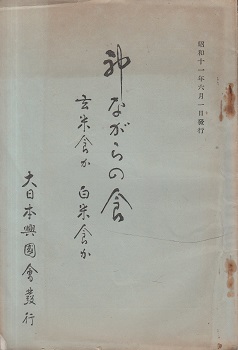 昭和十一年六月一日發行
神ながらの食
玄米食か 白米食か
大日本興國會發行